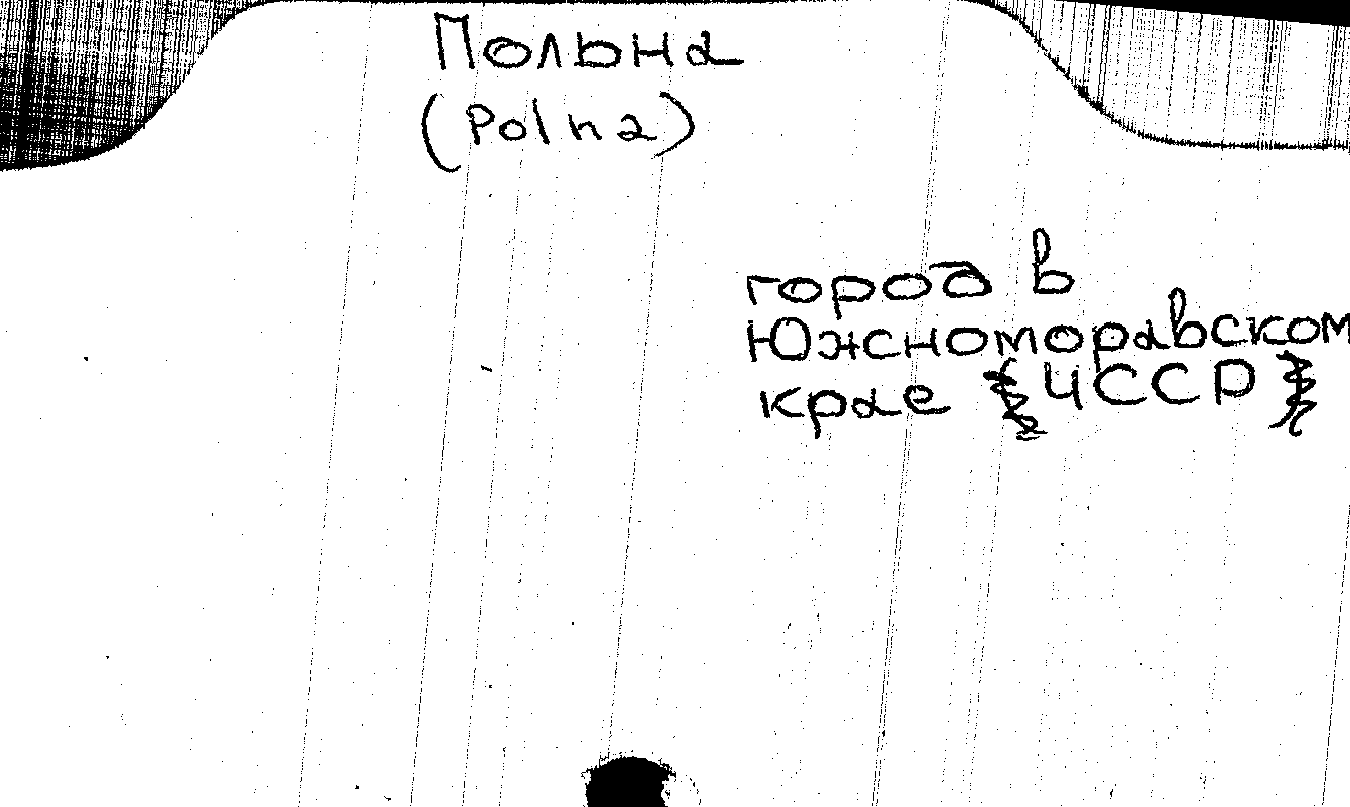 Польна
(Polna)
город в
Южноморавском
крае ЧССР